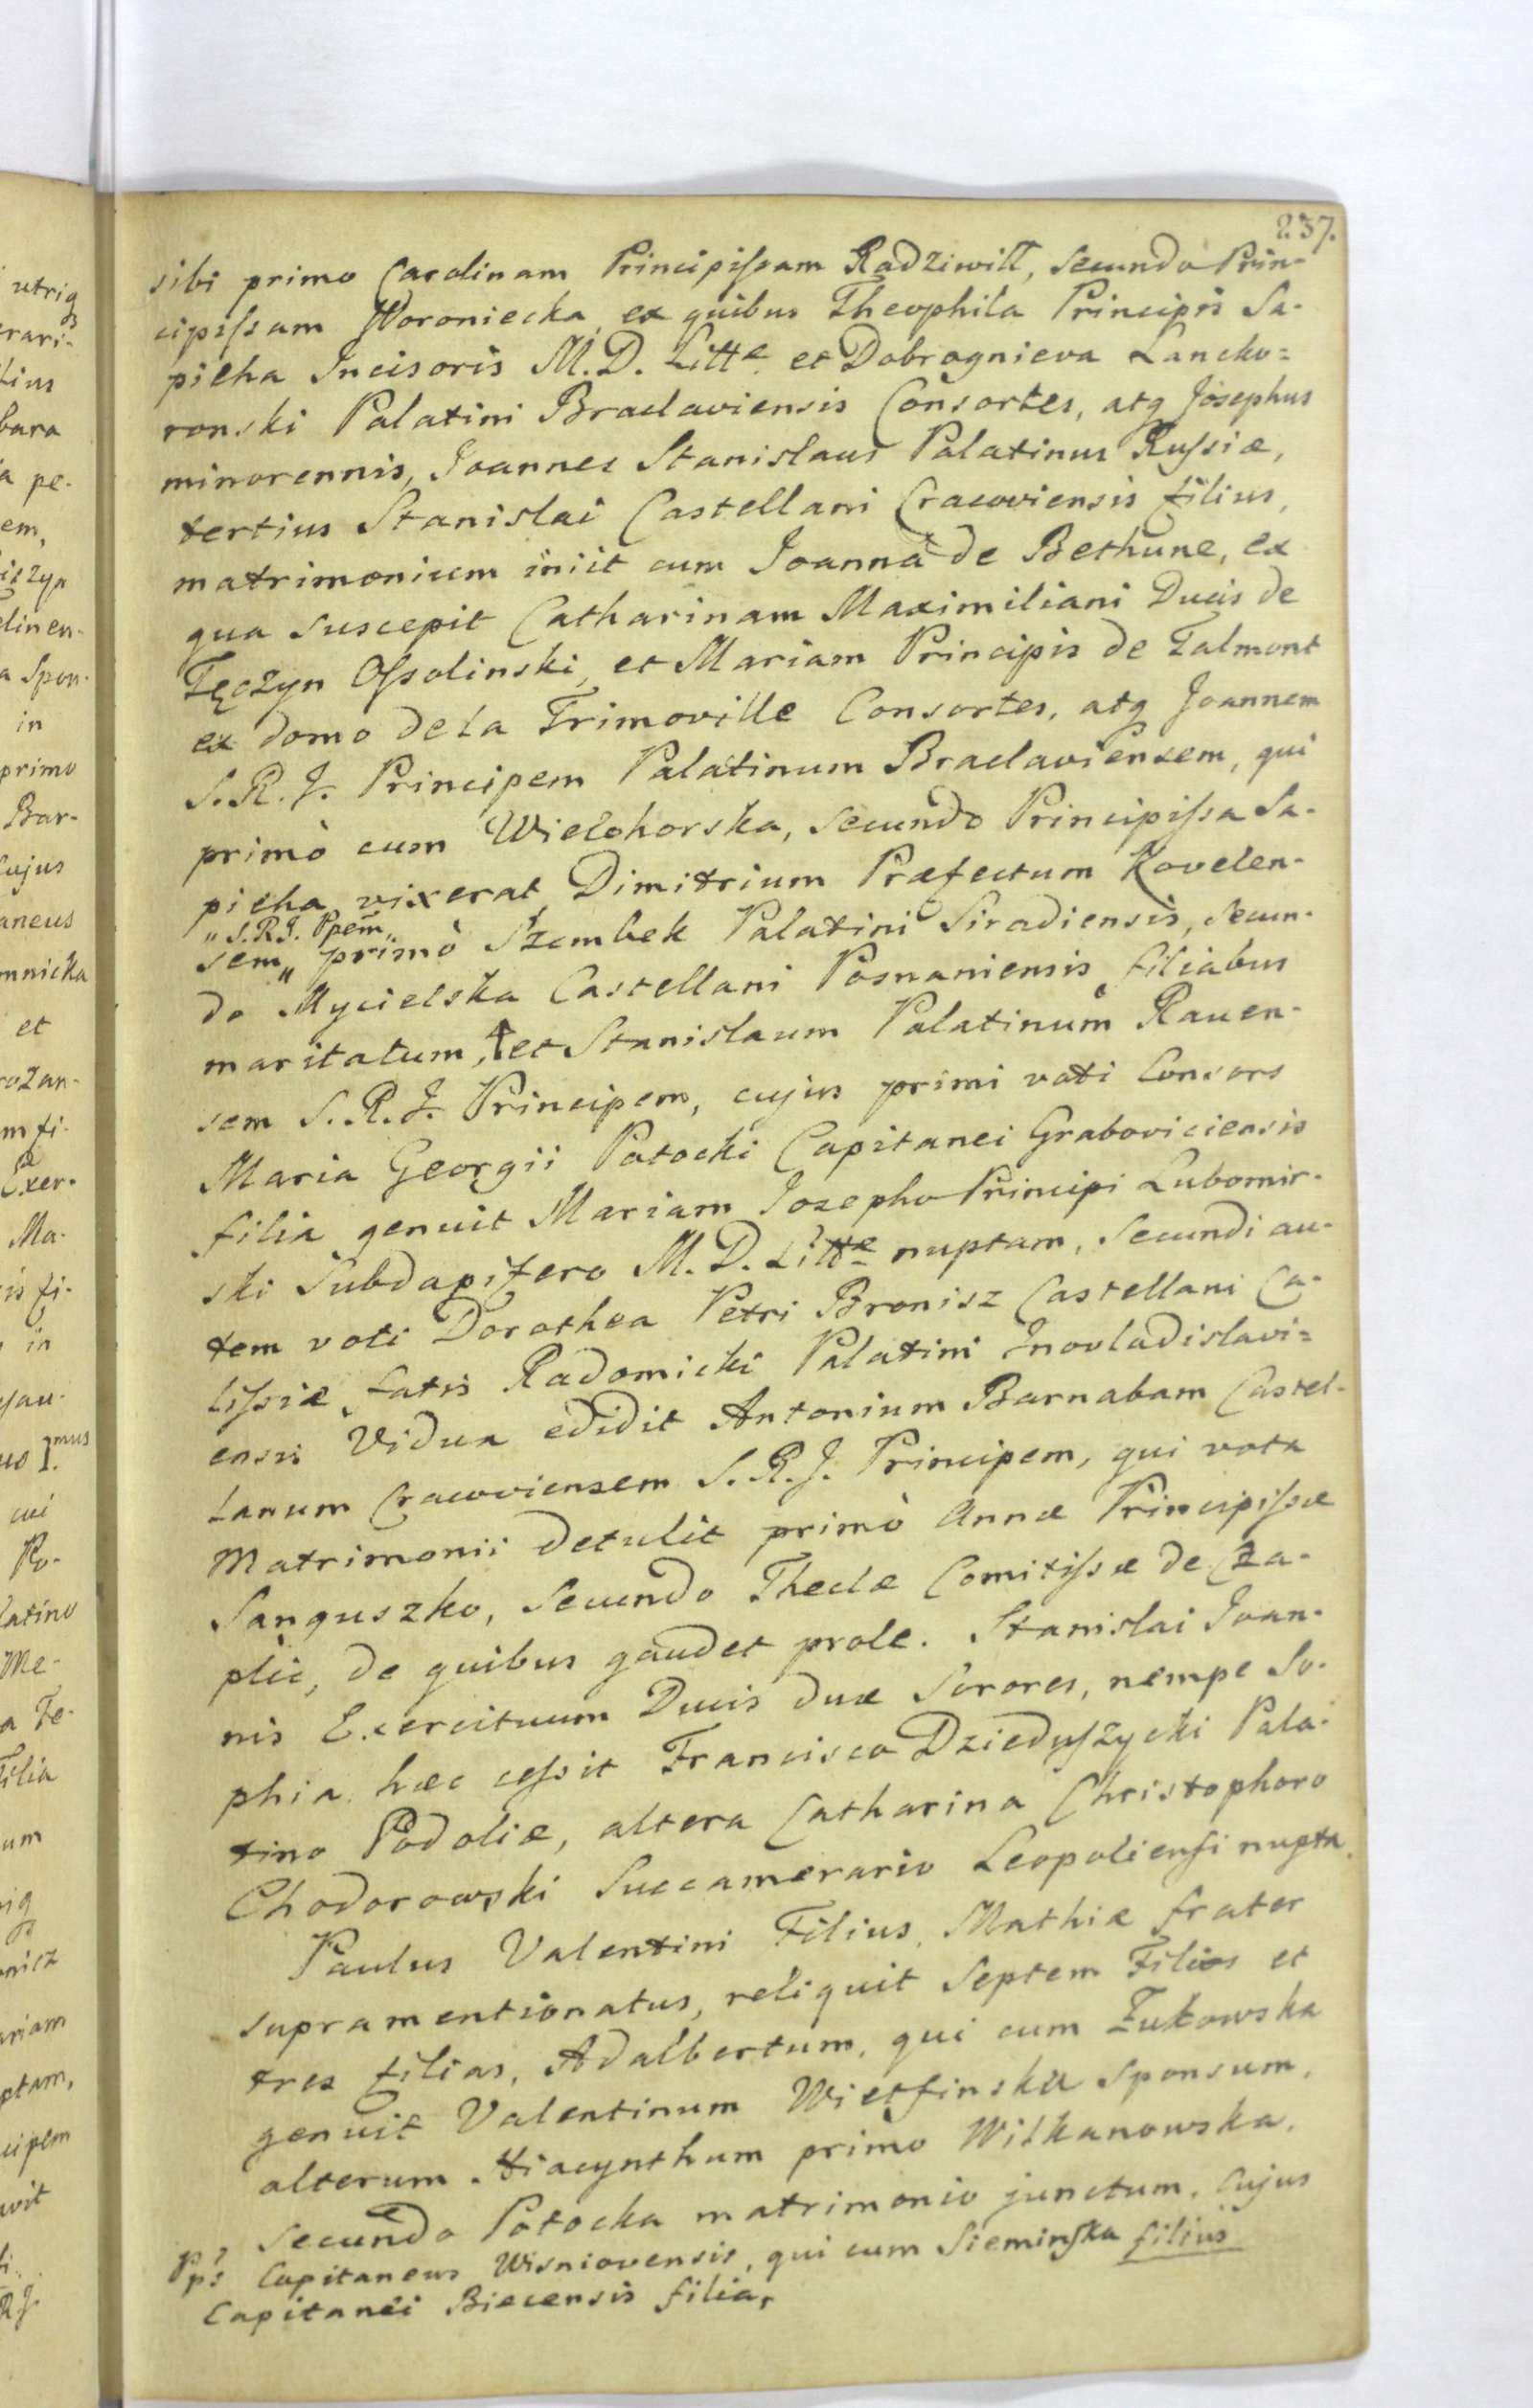 237.
sibi primo Carolinam Principissam Radziwiłł, Secundo Prin-
cipissam Woroniecka, ex quibus Theophila Principis Sa-
pieha Incisoris M.D. Littæ et Dobrognieva Lancko=
ronski Palatini Braclaviensis Consortes, atq Josephus
minorennis, Joannes Stanislaus Palatinus Russiæ,
tertius Stanislai Castellani Cracoviensis filius,
matrimonium iniit cum Joanna de Bethune, ex
qua suscepit Catharinam Maximiliani Ducis de
Tęczyn Ossolinski, et Mariam Principis de Talmont
ex domo de la Trimoville Consortes, atq Joannem
S.R.J. Principem Palatinum Braclaviensem, qui
primò cum Wielohorska, Secundo Principissa Sa-
pieha vixerat, Dimitrium Præfectum Kovelen-
„S.R.J. Ppem„
sem„ primò Szembek Palatini Siradiensis, Secun-
do Mycielska Castellani Posnaniensis filiabus
maritatum, et Stanislaum Palatinum Raven-
sem S.R.J. Principem, cujus primi voti Consors
Maria Georgii Potocki Capitanei Graboviciensis
filia genuit Mariam Josepho Principi Lubomir-
ski Subdapifero M.D. Littæ nuptam, Secundi au-
tem voti Dorothea Petri Bronisz Castellani Ca-
lissiæ, fatis Radomicki Palatini Inovladislavi=
ensis Vidua edidit Antonium Barnabam Castel-
lanum Cracoviensem S.R.J. Principem, qui vota
Matrimonii detulit primò Annæ Principissæ
Sanguszko, Secundo Theclæ Comitissæ de Cza-
plic, de quibus gaudet prole. Stanislai Joan-
nis Exercituum Ducis duæ Sorores, nempe So-
phia hæc cessit Francisco Dzieduszycki Pala-
tino Podoliæ, altera Catharina Christophoro
Chodorowski Succamerario Leopoliensi nupta.
Paulus Valentini Filius, Mathiæ frater
supramentionatus, reliquit Septem Filios et
tres filias, Adalbertum, qui cum Żukowska
genuit Valentinum sponsum,
alterum Hiacynthum primò Wilkanowska,
Secundo Potocka matrimonio junctum, Cujus
Capitaneus Wisniovensis, qui cum Sieminska filius
Capitanei Biecensis filia,